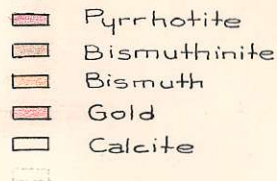 Pyrrhotite
Bismuthinite
Bismuth
Gold
Calcite